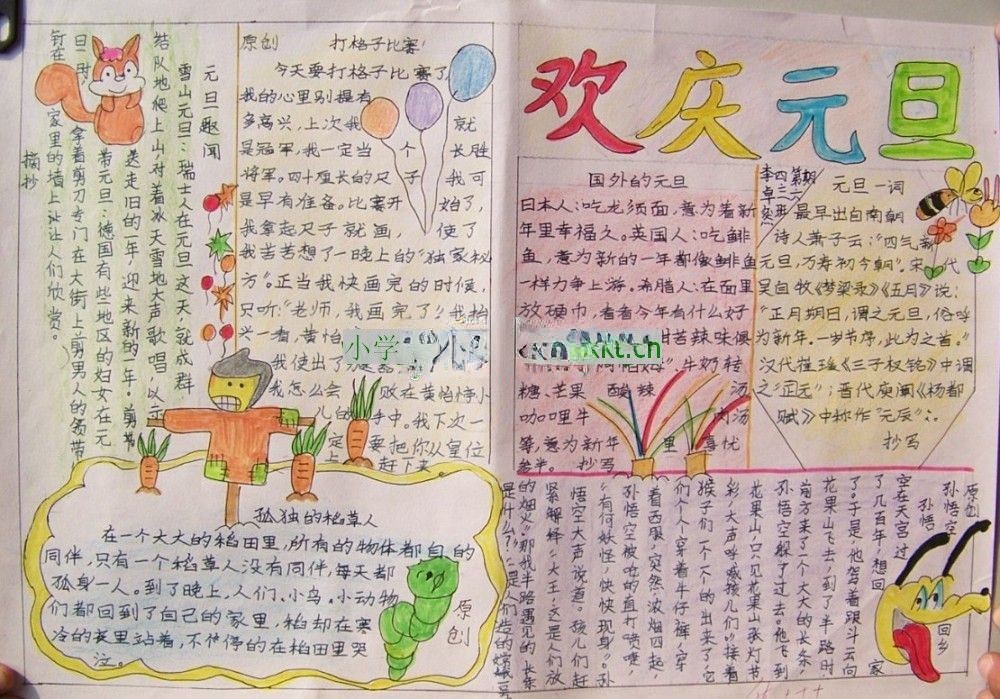 欢庆元旦
李卓奕
四三班
第期
元旦一词
最早出自南朝
诗人萧子云：“四气新
元旦，万寿初今朝”。宋代
吴自牧《梦梁录》《五月》说：
“正月朔日，谓之元旦，俗呼
为新年。一岁节序，此为之首。”
汉代崔瑗《三子钗铭》中谓
之“正元”；晋代庾阐《杨都
赋》中称作“元辰”；
抄写
国外的元旦
日本人：吃龙须面，意为着新
年里幸福久。英国人：吃鲱
鱼，意为新的一年都像鲱鱼
一样力争上游。希腊人：在面里
放硬巾，看看今年有什么好
甜苦辣味俱
牛奶转
糖、芒果 酸辣 汤
咖哩牛 肉汤
等，意为新年 里 喜忧
参半。 抄写
原创 打格子比赛
今天要打格子比赛了
我的心里别提有
多高兴，上次我 就
是冠军，我一定当 个 长胜
将军。四十厘长的尺 子 我可
是早有准备。比赛开 始了，
我拿起尺子就画， 使了
我苦苦想了一晚上的“独家秘
方”。正当我快画完的时候，
只听“老师，我画完了！”我抬
兴一看，黄怡
我使出了
我怎么会 败在黄怡婷小
儿的 手中。我下次一
定 要把你从皇位
上 赶下来。
元旦趣闻
雪山元旦：瑞士人在元旦这天，就成群
结队地爬上山，对着冰天雪地大声歌唱，以示
送走旧的一年，迎来新的一年。剪男
带元旦：德国有些地区的妇女在元
旦时 拿着剪刀专门在大街上剪男人的领带
钉在 家里的墙上让让人们欣赏。
摘抄
孤独的稻草人
在一个大大的稻田里，所有的物体都自的
同伴，只有一个稻草人没有同伴，每天都
孤身一人。到了晚上，人们、小鸟、小动物
们都回到了自己的家里，稻却在寒
冷的夜里站着，不停停的在稻田里哭
泣。
原创
原创
孙悟空 回乡
孙悟
空在天宫过
了几百年，想回 家
了。于是，他驾着跟斗云向
花果山飞去，到了半路时
前方来了一个大大的长条，
孙悟空躲了过去。他飞到
花果山，只见花果山张灯节
彩，大声呼喊孩儿们。”接着
猴子们一个个的出来了，它
们个个人穿着牛仔裤，穿
着西服，突然，浓烟四起，
孙悟空被呛的直打喷嚏，
“有何妖怪，快快现身。”孙
悟空大声说道。孩儿们赶
紧解释：“大王，这是人们放
的烟火。”“那我半路遇见的长条
是什么？”“是人们造的嫦娥号
小学
kt.ch